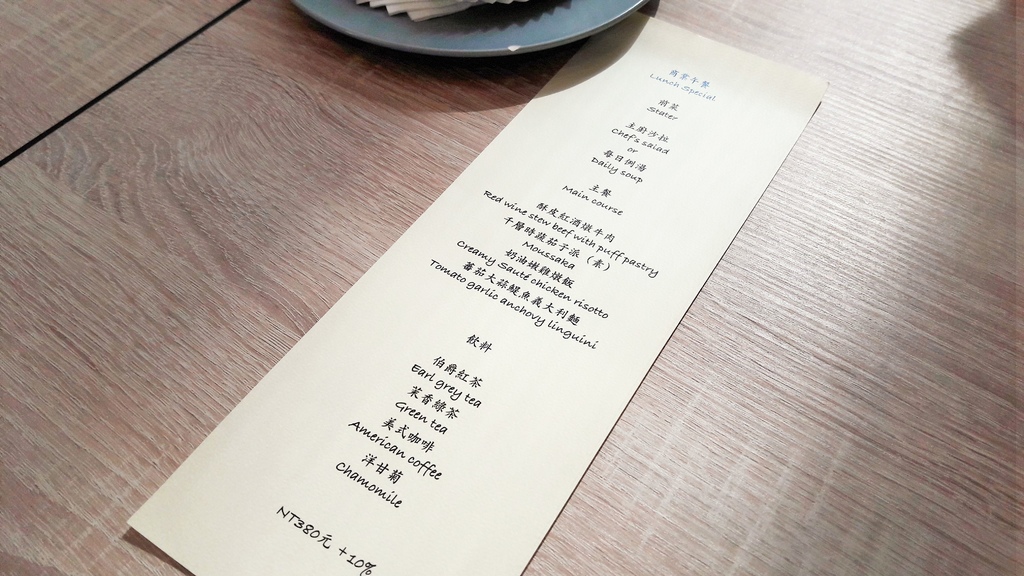 商業午餐
Lunch Special
前菜
Stater
主廚沙拉
Chef's salad
or
每日例湯
Daily soup
主餐
Main course
酥皮紅酒燉牛肉
Red wine stew beef with puff pastry
千層時蔬茄子派（素）
Moussaka
奶油嫩雞燉飯
Creamy Sauté chicken risotto
蕃茄大蒜鯷魚義大利麵
Tomato garlic anchovy linguini
飲料
伯爵紅茶
Earl grey tea
茉香綠茶
Green tea
美式咖啡
American coffee
洋甘菊
Chamomile
NT380元 +10%